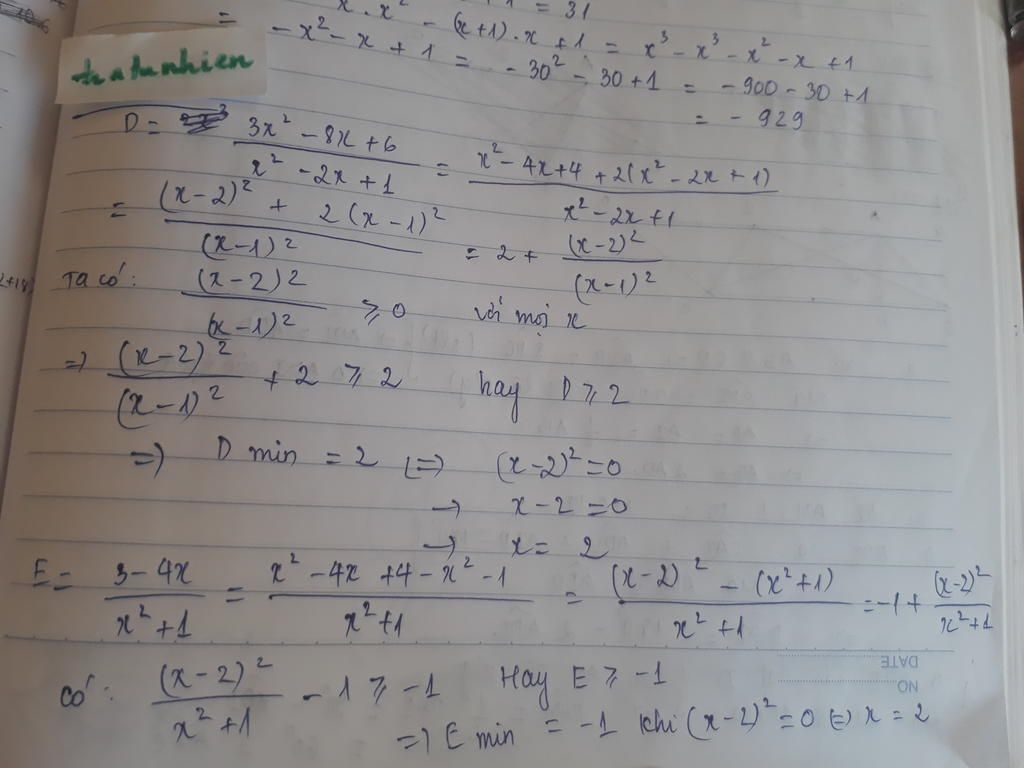 x.x² - (x+1).x + 1 = x³ - x³ - x² - x + 1
= -x² - x + 1 = -30² - 30 + 1 = -900 - 30 + 1
= -929
tuatunhien
D = (3x² - 8x + 6)/(x² - 2x + 1) = (x² - 4x + 4 + 2(x² - 2x + 1))/(x² - 2x + 1)
= ((x-2)² + 2(x-1)²)/(x-1)² = 2 + (x-2)²/(x-1)²
Ta có: (x-2)²/(x-1)² ⩾ 0 với mọi x
=> (x-2)²/(x-1)² + 2 ⩾ 2 hay D ⩾ 2
=> D min = 2 (=) (x-2)² = 0
→ x - 2 = 0
→ x = 2
E = (3 - 4x)/(x² + 1) = (x² - 4x + 4 - x² - 1)/(x² + 1) = ((x-2)² - (x²+1))/(x² + 1) = -1 + (x-2)²/(x²+1)
DATE
NO
có: (x-2)²/(x² + 1) - 1 ⩾ -1 Hay E ⩾ -1
=> E min = -1 khi (x-2)² = 0 (=) x = 2